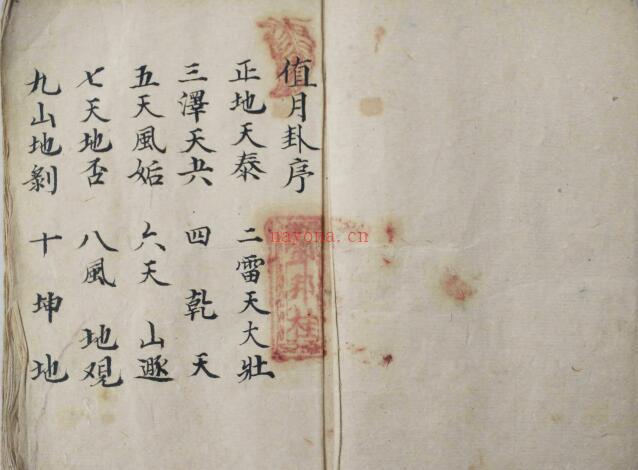 值月卦序
正地天泰 二雷天大壯
三澤天夬 四乾天
五天風姤 六天山遯
七天地否 八風地观
九山地剝 十坤地
nayona.cn